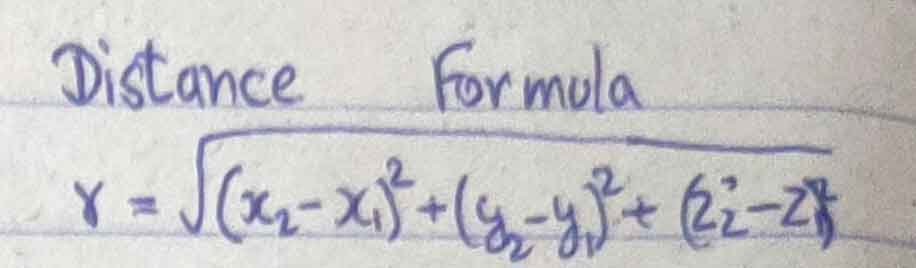 Distance Formula
r = √(x₂-x₁)²+(y₂-y₁)²+(z₂-z₁)²